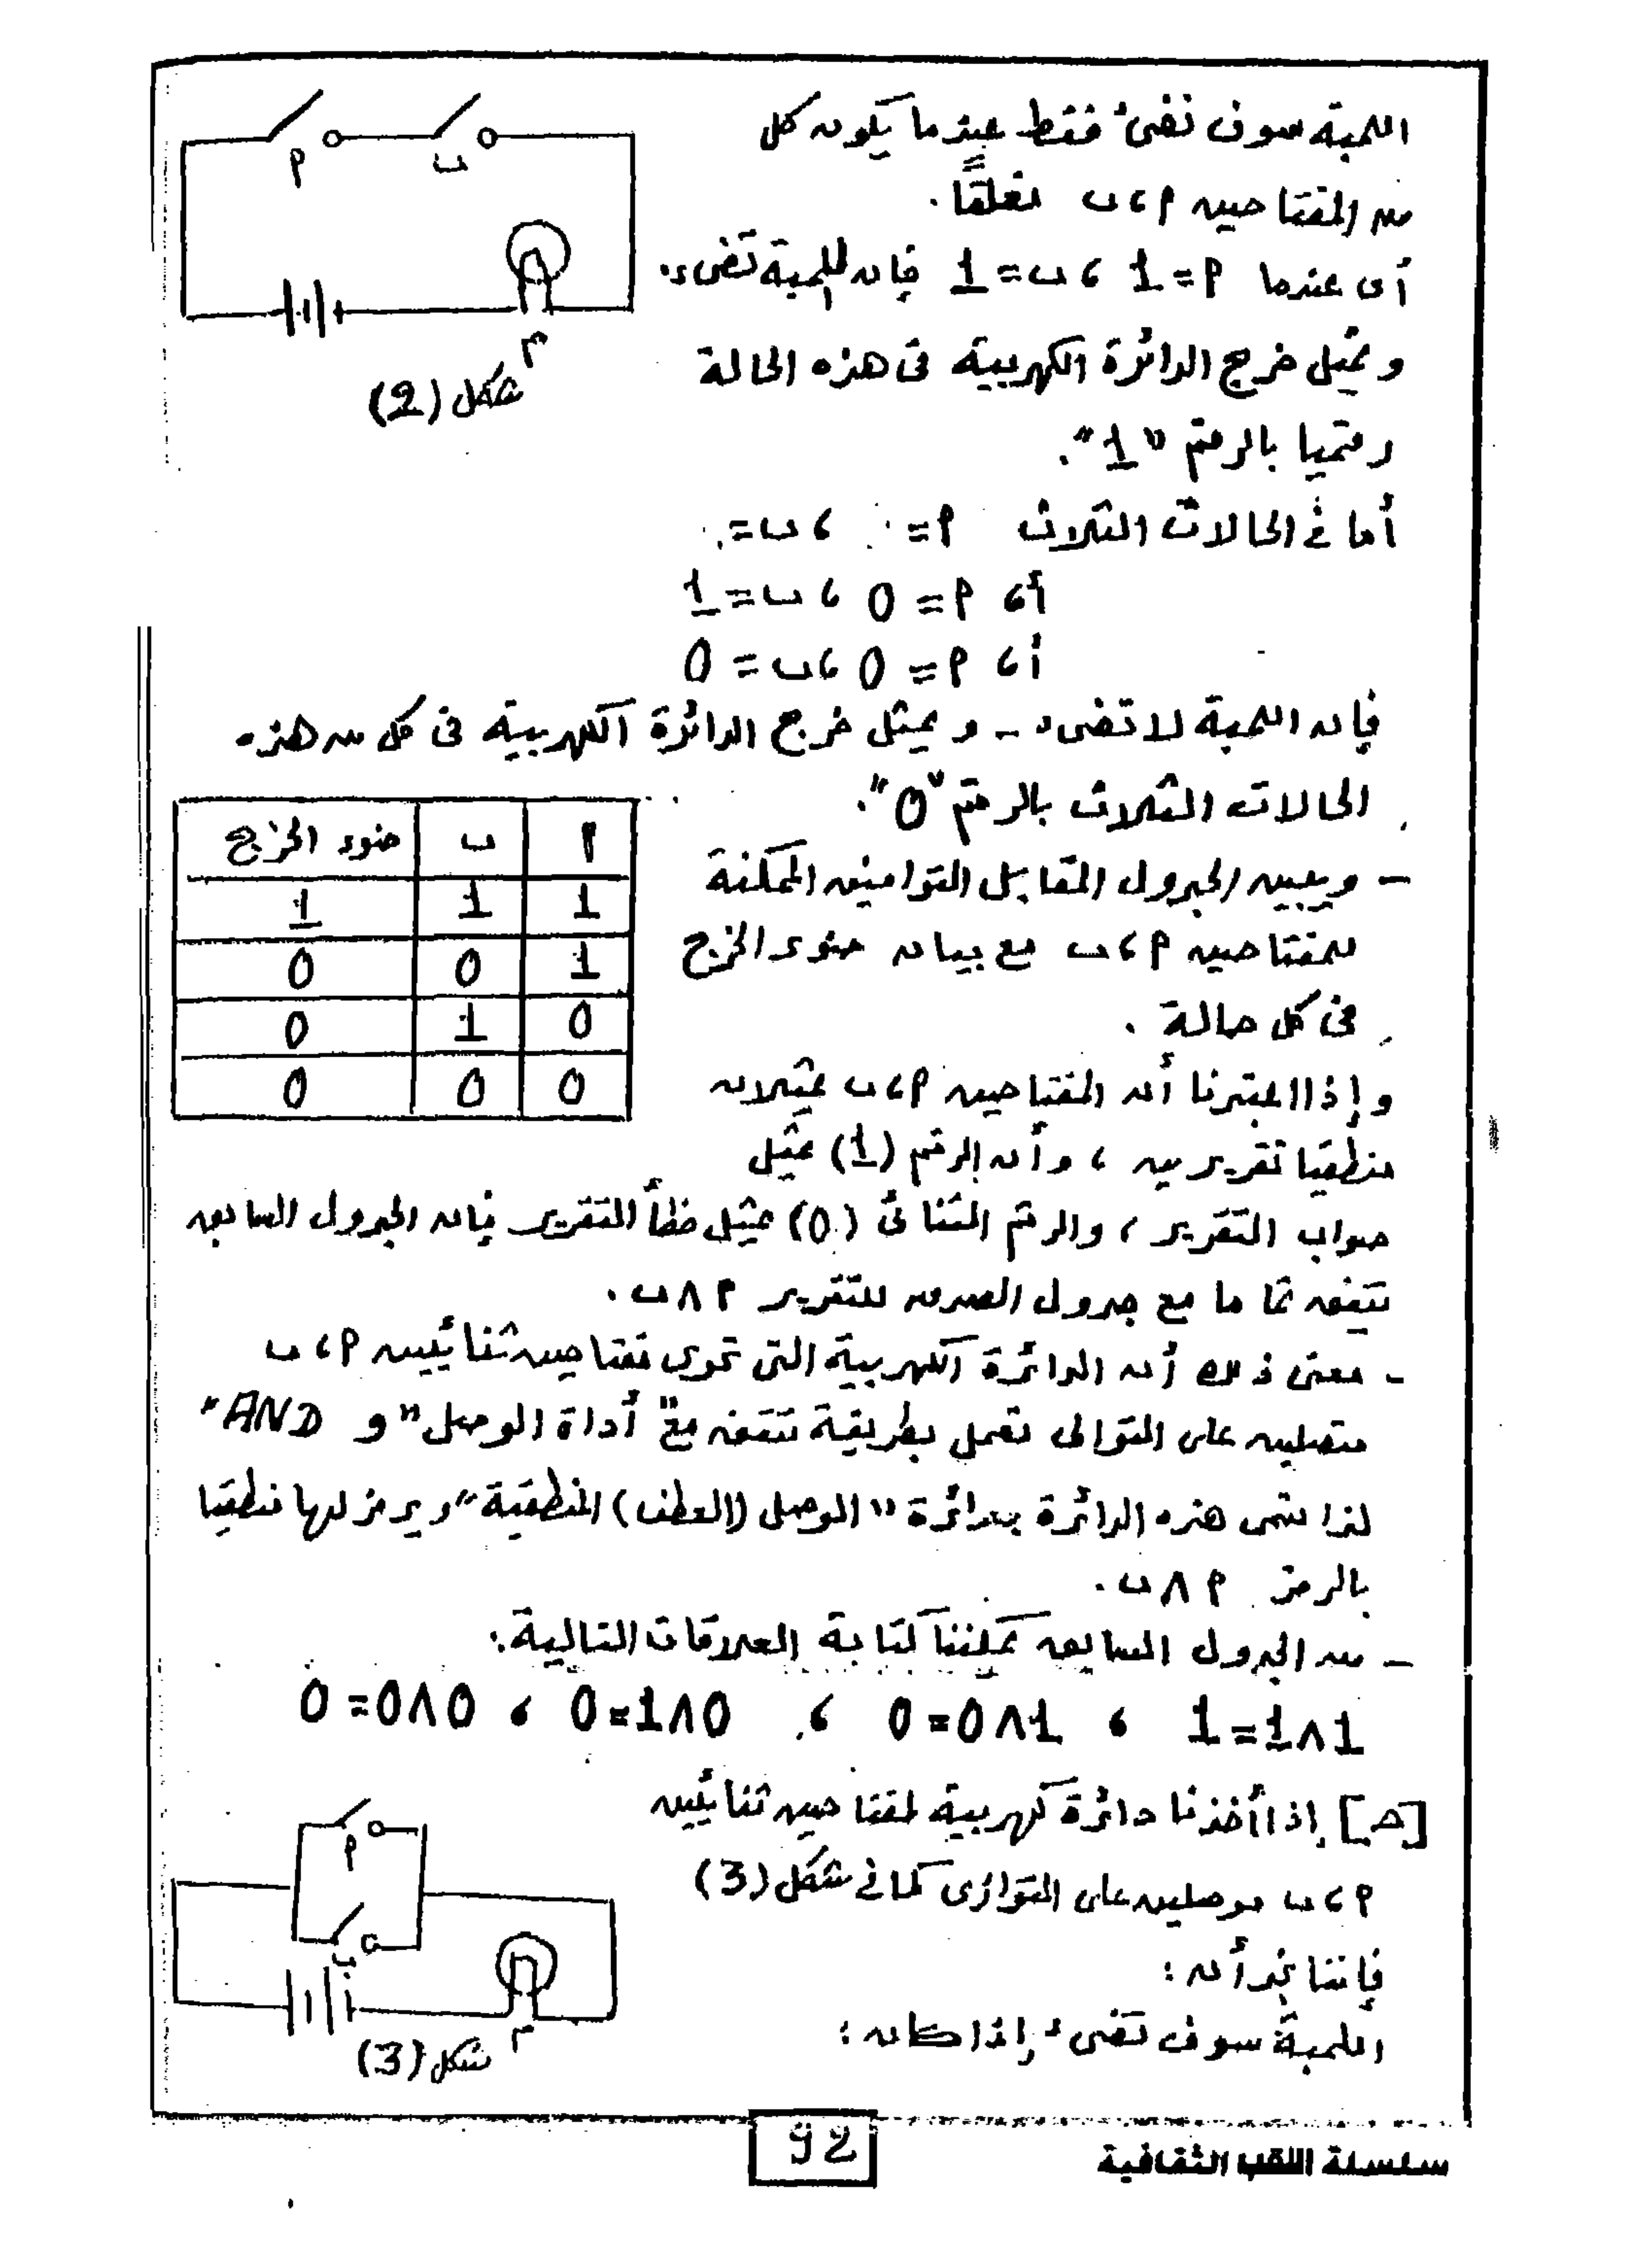 اللمبة سوف تضئ فقط عندما يكون كل
من المفتاحين م، ب مغلقاً.
أى عندما م = 1 ، ب = 1 فإن اللمبة تضىء.
ويمثل خرج الدائرة الكهربية فى هذه الحالة
رقميا بالرقم "1".
شكل (2)
أما فى الحالات الثلاث م = . ، ب = .
أ، م = 0 ، ب = 1
أ، م = 0 ، ب = 0
فإن اللمبة لا تضىء - ويمثل خرج الدائرة الكهربية فى كل من هذه
الحالات الثلاث بالرقم "0".
م ب ضوء الخرج
1 1 1
1 0 0
0 1 0
0 0 0
- ويبين الجدول المقابل التوافيق الممكنة
للمفتاحين م، ب مع بيان ضوء الخرج
فى كل حالة .
وإذا اعتبرنا أن المفتاحين م، ب يمثلان
منطقيا تقريرين ، وأن الرقم (1) يمثل
صواب التقرير ، والرقم الثنائى (0) يمثل خطأ التقرير فإن الجدول السابق
يتفق تماما مع جدول الصدق للتقرير م ∧ ب .
- معنى ذلك أن الدائرة الكهربية التى تحوى مفتاحين ثنائيين م، ب
متصلين على التوالى تعمل بطريقة تتفق مع أداة الوصل "و AND"
لذا تسمى هذه الدائرة بدائرة "الوصل (العطف) المنطقية" ويرمز لها منطقيا
بالرمز م ∧ ب .
- من الجدول السابق يمكننا كتابة العلاقات التالية:
1∧1=1 ، 1∧0=0 ، 0∧1=0 ، 0∧0=0
[ح] إذا أخذنا دائرة كهربية لمفتاحين ثنائيين
م، ب موصلين على التوازى كما فى شكل (3)
فإننا نجد أن :
اللمبة سوف تضئ إذا كان :
م
ب
م
شكل (3)
92
سلسلة اللقب الثقافية